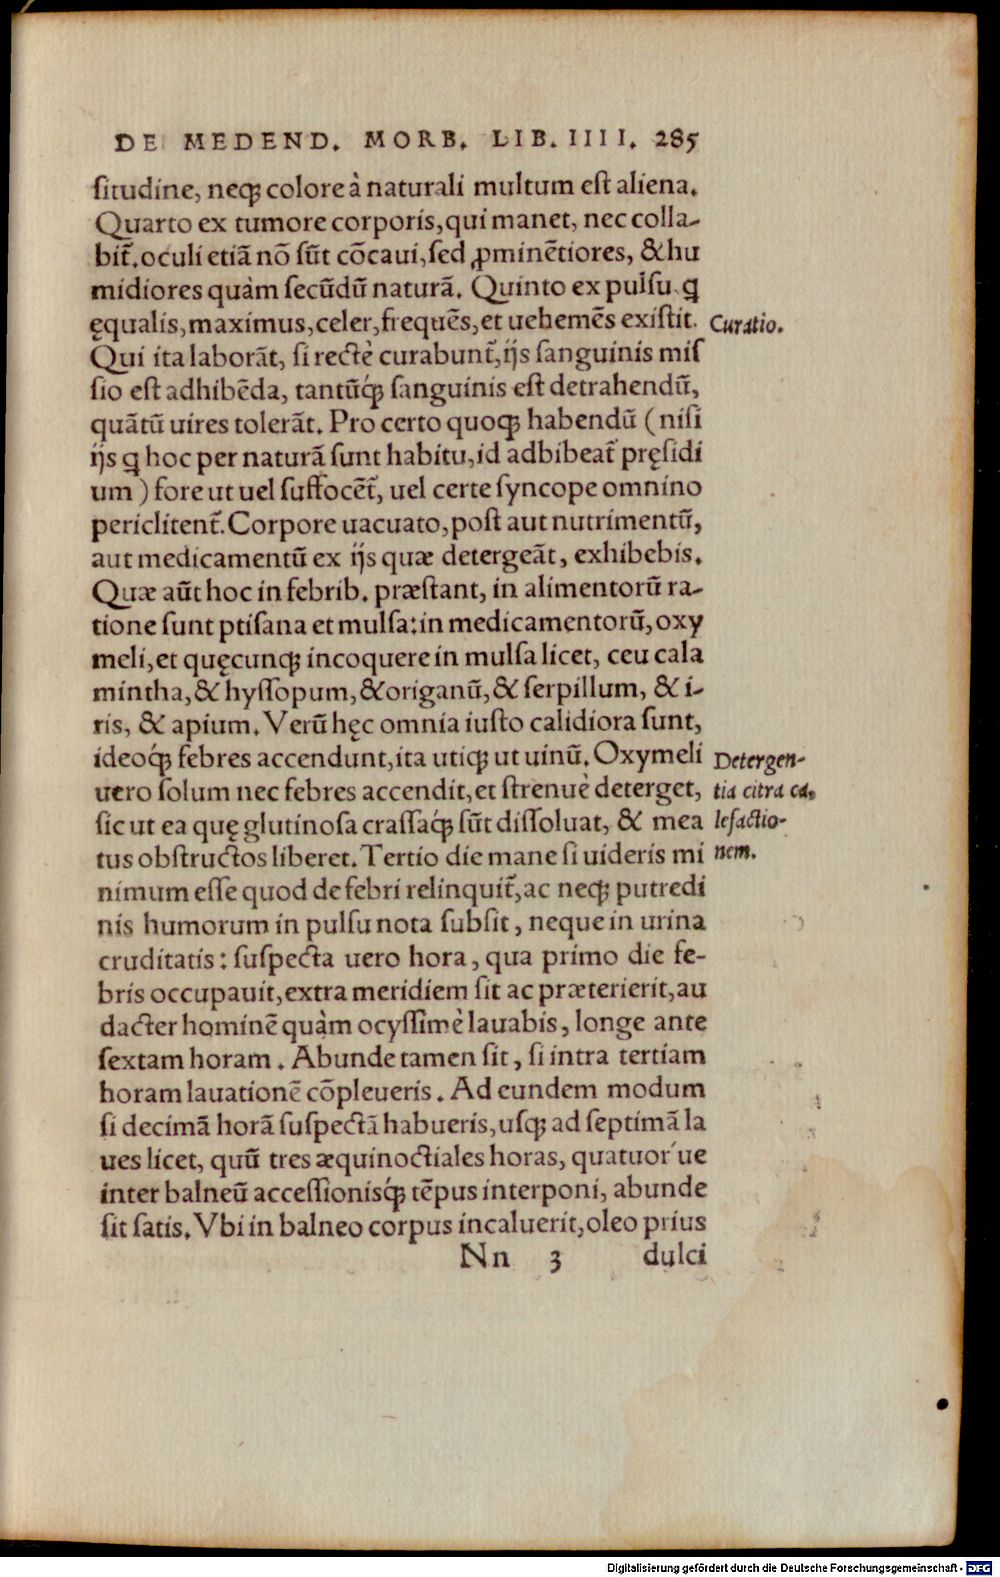 DE MEDEND. MORB. LIB. IIII. 285
situdine, neqꝫ colore à naturali multum est aliena.
Quarto ex tumore corporis, qui manet, nec colla-
bit̃. oculi etiã nõ sũt cõcaui, sed ꝓminẽtiores, & hu
midiores quàm secũdũ naturã. Quinto ex pulsu q̃
ęqualis, maximus, celer, frequẽs, et uehemẽs existit.
Curatio.
Qui ita laborãt, si rectè curabunt̃, ijs sanguinis mis
sio est adhibẽda, tantũqꝫ sanguinis est detrahendũ,
quãtũ uires tolerãt. Pro certo quoqꝫ habendũ (nisi
ijs q̃ hoc per naturã sunt habitu, id adbibeat̃ pręsidi
um) fore ut uel suffocẽt̃, uel certe syncope omnino
periclitent̃. Corpore uacuato, post aut nutrimentũ,
aut medicamentũ ex ijs quæ detergeãt, exhibebis.
Quæ aũt hoc in febrib. præstant, in alimentorũ ra-
tione sunt ptisana et mulsa: in medicamentorũ, oxy
meli, et quęcunqꝫ incoquere in mulsa licet, ceu cala
mintha, & hyssopum, & origanũ, & serpillum, & i-
ris, & apium. Verũ hęc omnia iusto calidiora sunt,
ideoqꝫ febres accendunt, ita utiqꝫ ut uinũ. Oxymeli
uero solum nec febres accendit, et strenuè deterget,
sic ut ea quę glutinosa crassaqꝫ sũt dissoluat, & mea
tus obstructos liberet. Tertio die mane si uideris mi
Detergen-
tia citra ca-
lefactio-
nem.
nimum esse quod de febri relinquit̃, ac neqꝫ putredi
nis humorum in pulsu nota subsit, neque in urina
cruditatis: suspecta uero hora, qua primo die fe-
bris occupauit, extra meridiem sit ac præterierit, au
dacter hominẽ quàm ocyssimè lauabis, longe ante
sextam horam. Abunde tamen sit, si intra tertiam
horam lauationẽ cõpleueris. Ad eundem modum
si decimã horã suspectã habueris, usqꝫ ad septimã la
ues licet, quũ tres æquinoctiales horas, quatuor ue
inter balneũ accessionisqꝫ tẽpus interponi, abunde
sit satis. Vbi in balneo corpus incaluerit, oleo prius
Nn 3 dulci
Digitalisierung gefördert durch die Deutsche Forschungsgemeinschaft - DFG